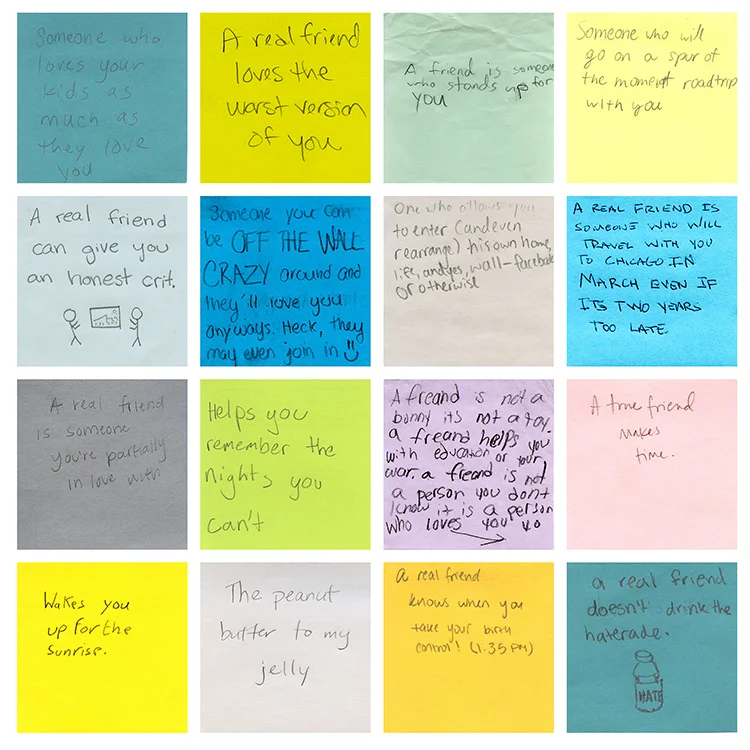 Someone who
loves your
kids as
much as
they love
you
A real friend
loves the
worst version
of you
A friend is someone
who stands up for
you
Someone who will
go on a spur of
the moment roadtrip
with you
A real friend
can give you
an honest crit.
Someone you can
be OFF THE WALL
CRAZY around and
they'll love you
anyways. Heck, they
may even join in
One who allows you
to enter (and even
rearrange) his own home,
life, and yes, wall-facebook
or otherwise
A REAL FRIEND IS
SOMEONE WHO WILL
TRAVEL WITH YOU
TO CHICAGO IN
MARCH EVEN IF
ITS TWO YEARS
TOO LATE.
A real friend
is someone
you're partially
in love with
Helps you
remember the
nights you
can't
A freand is not a
bonny it's not a toy.
a freand helps you
with educaton or your
war. a freand is not
a person you don't
know it is a person
who loves you yo
A true friend
makes
time.
Wakes you
up for the
sunrise.
The peanut
butter to my
jelly
a real friend
knows when you
take your birth
control! (1:35 PM)
a real friend
doesn't drink the
haterade.
HATE